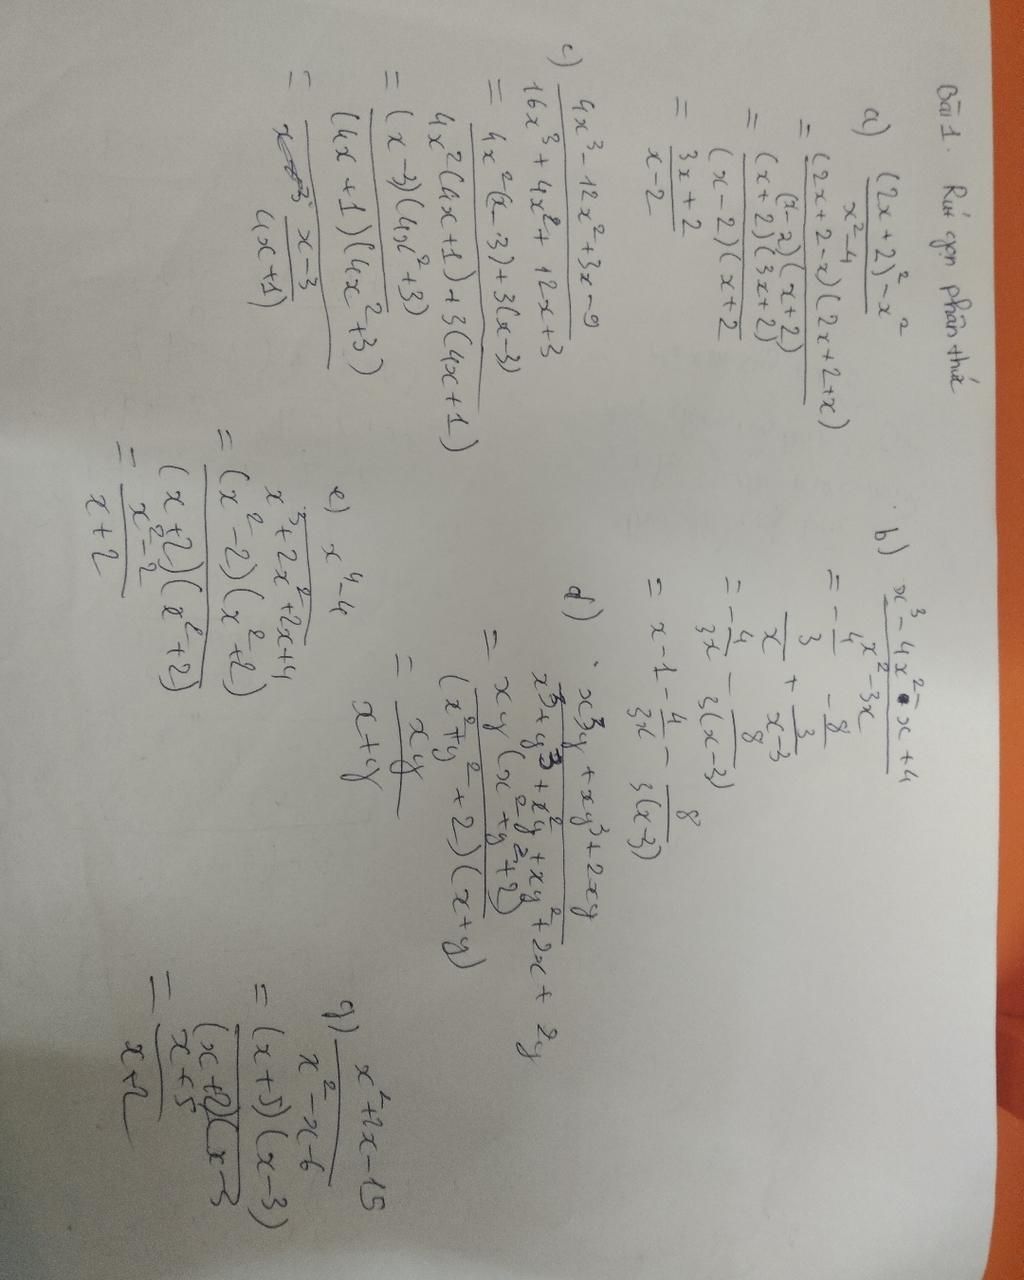 Bài 1. Rút gọn phân thức
a) (2x+2)² - x²
x² - 4
= (2x+2-x)(2x+2+x)
(x-2)(x+2)
= (x+2)(3x+2)
(x-2)(x+2
= 3x+2
x-2
b) x³ - 4x² - x + 4
x² - 3x
= - 4/3 / x + - 8/3 / x-3
= - 4/3x - 8/3(x-3)
= x - 1 - 4/3x - 8/3(x-3)
c) 4x³ - 12x² + 3x - 9
16x³ + 4x² + 12x + 3
= 4x²(x-3) + 3(x-3)
4x²(4x+1) + 3(4x+1)
= (x-3)(4x²+3)
(4x+1)(4x²+3)
= x-3
4x+1)
d) x³y + xy³ + 2xy
x³ + y³ + x²y + xy² + 2x + 2y
= xy(x²+y²+2)
(x²+y²+2)(x+y)
= xy
x+y
e) x⁴-4
x³+2x²+2x+4
= (x²-2)(x²+2)
(x+2)(x²+2)
= x²-2
x+2
g) x²+2x-15
x²-x-6
= (x+5)(x-3)
(x+2)(x-3
= x+5
x+2